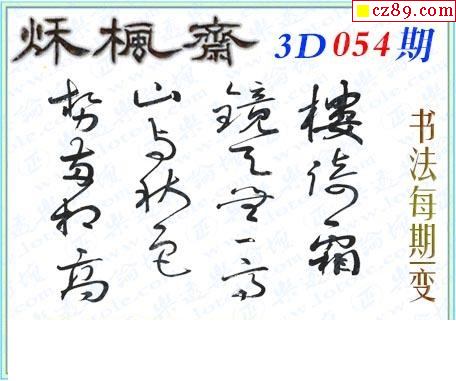 cz89.com
秌楓齋
3D054期
樓倚霜
鏡天無一毫
山与秋色
势两相高
书法每期一变